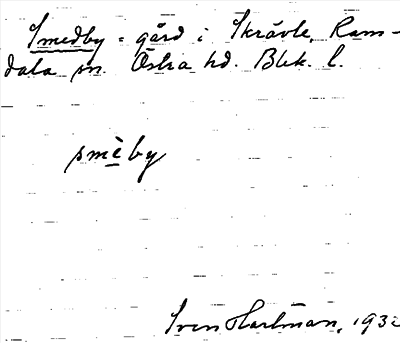 Smedby = gård i Skrävle, Ram-
dala sn. Östra hd. Blek. l.
smèby
Sven Hartman, 193